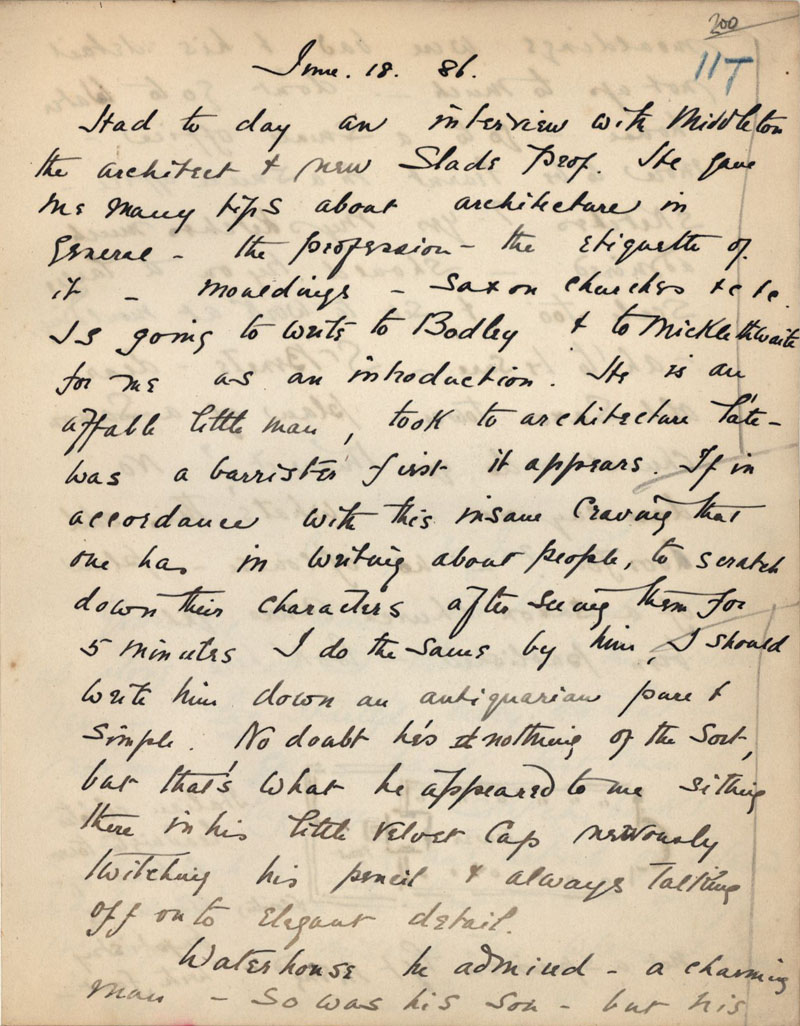 200
117
June. 18. 86.
Had to day an interview with Middleton
the architect & new Slade Prof. He gave
me many tips about architecture in
general - the profession - the etiquette of
it - mouldings - Saxon churches &c &c.
Is going to write to Bodley & to Micklethwaite
for me as an introduction. He is an
affable little man, took to architecture late -
was a barrister first it appears. If in
accordance with this insane craving that
one has in writing about people, to scratch
down their characters after seeing them for
5 minutes I do the same by him, I should
write him down an antiquarian pure &
simple. No doubt he's nothing of the sort,
but that's what he appeared to me sitting
there in his little velvet cap nervously
twitching his pencil & always talking
off on to elegant detail.
Waterhouse he admired - a charming
man - so was his son - but his